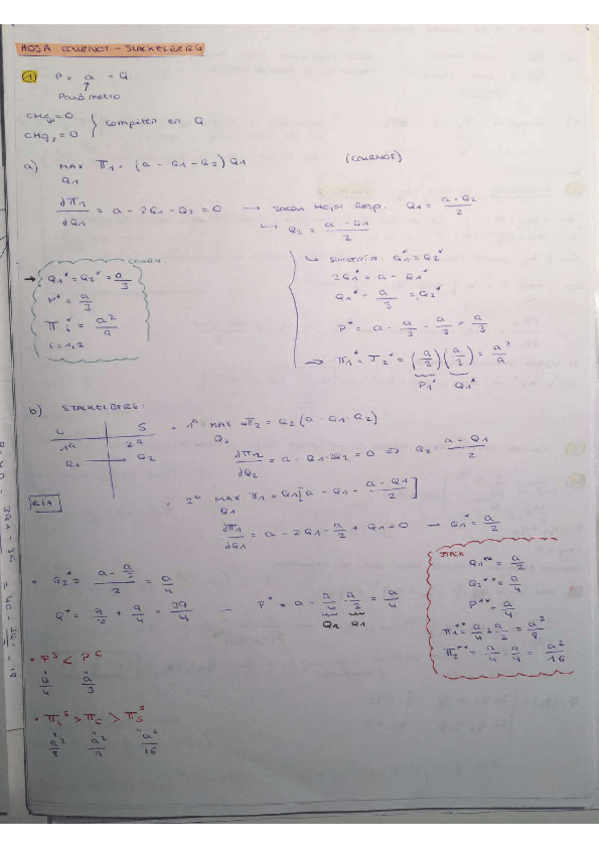 HOJA COURNOT - STACKELBERG
1) P = a - Q
↑
Parámetro
CMg1 = 0
CMg2 = 0 } compiten en Q
a) MAX π1 = (a - Q1 - Q2) Q1 (COURNOT)
Q1
∂π1/∂Q1 = a - 2Q1 - Q2 = 0 → Sacan Mejor Resp. Q1 = (a - Q2)/2
↳ Q2 = (a - Q1)/2
COURN.
→ Q1* = Q2* = a/3
P* = a/3
πi* = a²/9
i = 1,2
↳ Simetría Q1* = Q2*
2Q1* = a - Q1*
Q1* = a/3 = Q2*
P* = a - a/3 - a/3 = a/3
⇒ π1* = π2* = (a/3)(a/3) = a²/9
P1* Q1*
b) STACKELBERG:
L S
1ª 2ª
Q1 — Q2
1º MAX π2 = Q2 (a - Q1 - Q2)
Q2
∂π2/∂Q2 = a - Q1 - 2Q2 = 0 ⇒ Q2 = (a - Q1)/2
2º MAX π1 = Q1[a - Q1 - (a - Q1)/2]
Q1
∂π1/∂Q1 = a - 2Q1 - a/2 + Q1 = 0 → Q1* = a/2
• Q2* = (a - a/2)/2 = a/4
Q* = a/2 + a/4 = 3a/4 → P* = a - a/2 - a/4 = a/4
Q1 Q2
STACK
Q1** = a/2
Q2** = a/4
P** = a/4
π1** = a/4 · a/2 = a²/8
π2** = a/4 · a/4 = a²/16
• P^S < P^C
a/4 a/3
• πL^S > πC > πS^S
a²/8 a²/9 a²/16